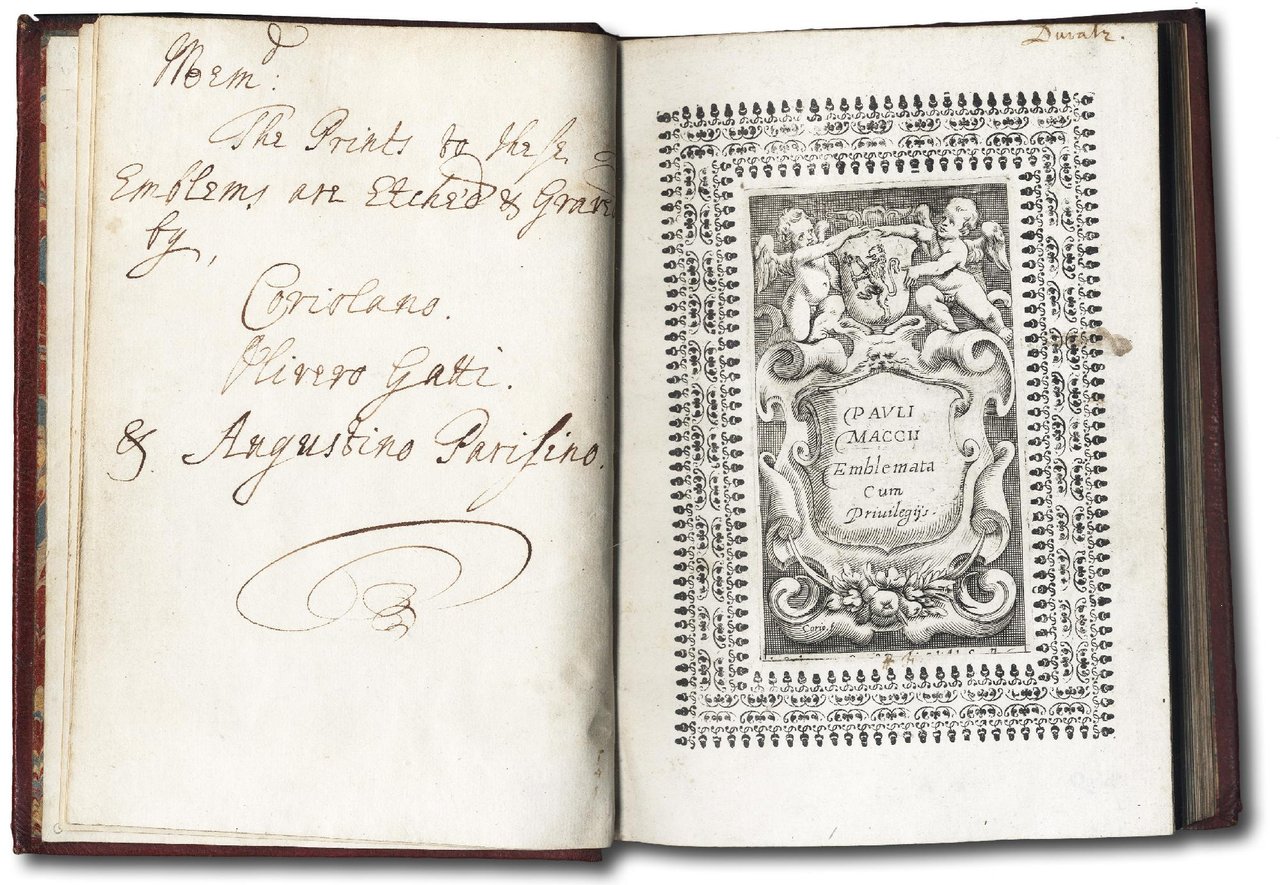 Mem^d:
The Prints to these
Emblems are Etched & Graved
by,
Coriolano.
Olivero Gatti.
& Augustino Parisino.
PAVLI
MACCII
Emblemata
Cum
Priuilegijs.
Corio. f.